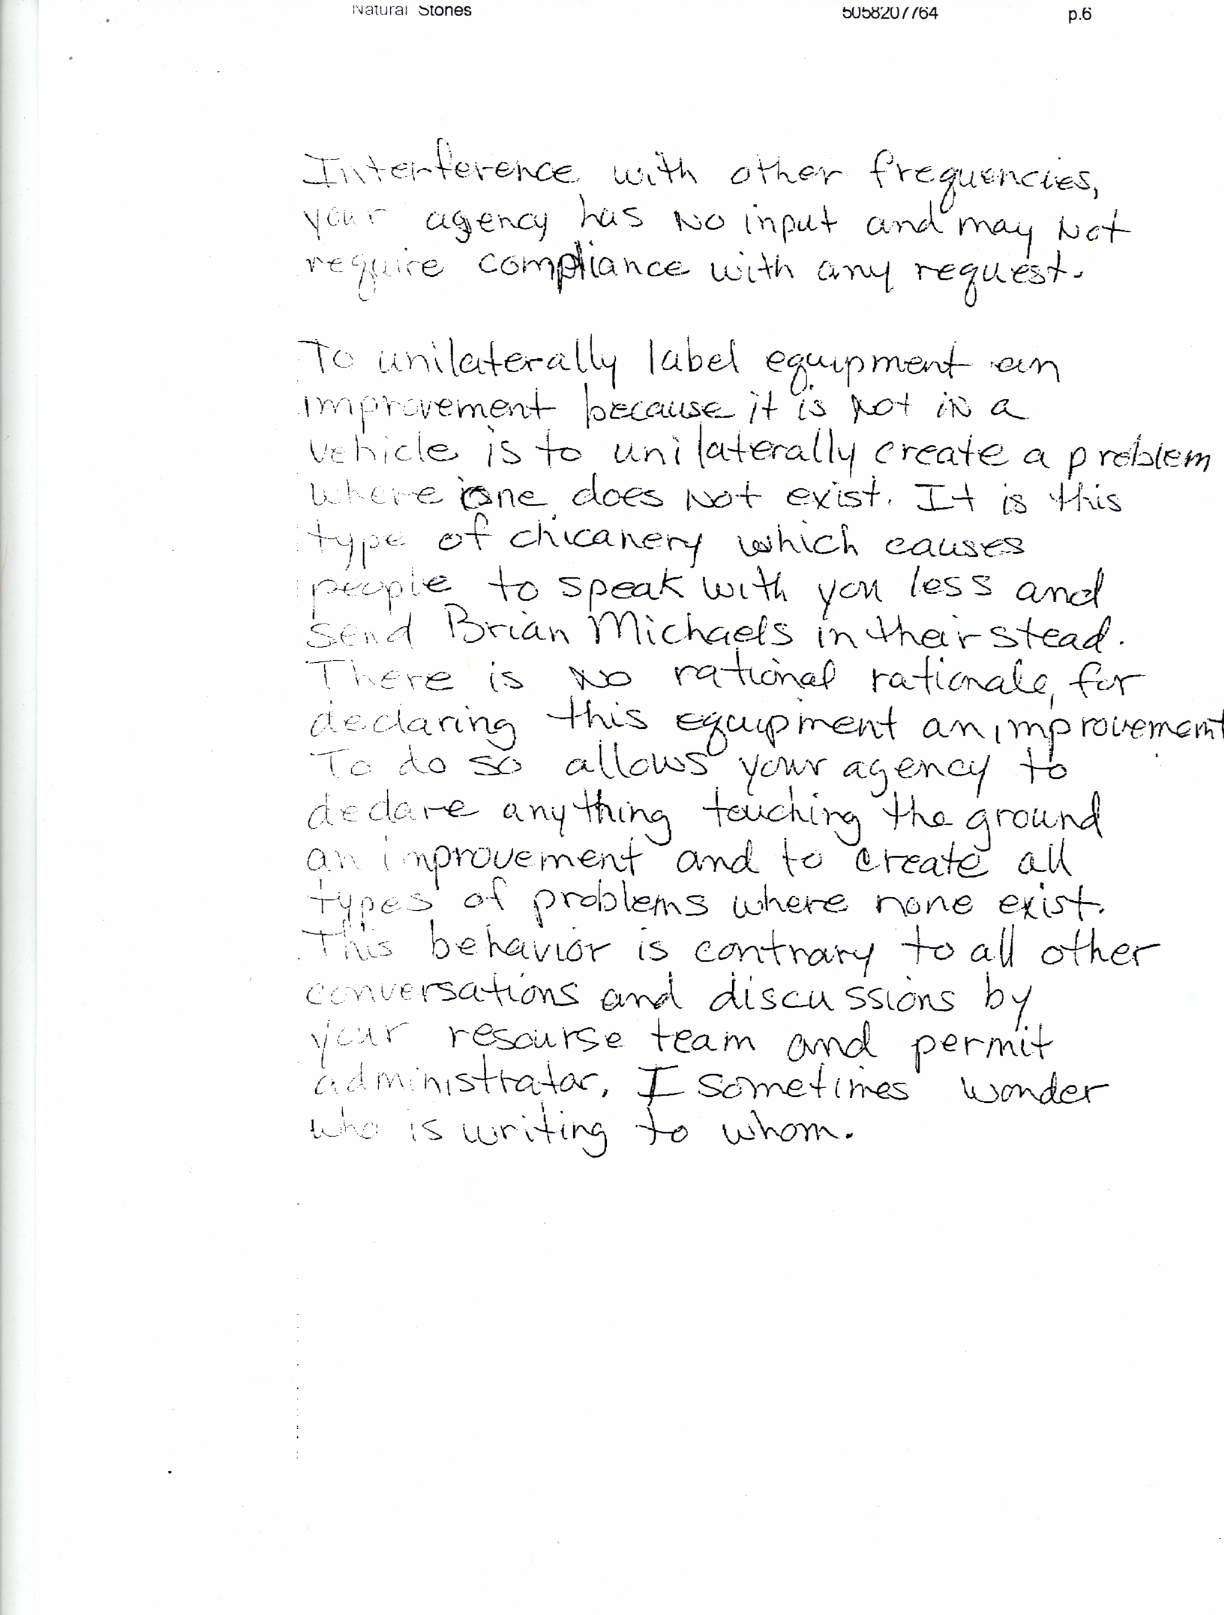 Natural Stones 5058207764 p.6
Interference with other frequencies,
your agency has no input and may not
require compliance with any request.
To unilaterally label equipment an
improvement because it is not in a
vehicle is to unilaterally create a problem
where one does not exist. It is this
type of chicanery which causes
people to speak with you less and
send Brian Michaels in their stead.
There is no rational rationale, for
declaring this equipment an improvement
To do so allows your agency to
declare anything touching the ground
an improvement and to create all
types of problems where none exist.
This behavior is contrary to all other
conversations and discussions by
your resourse team and permit
administrator. I sometimes wonder
who is writing to whom.